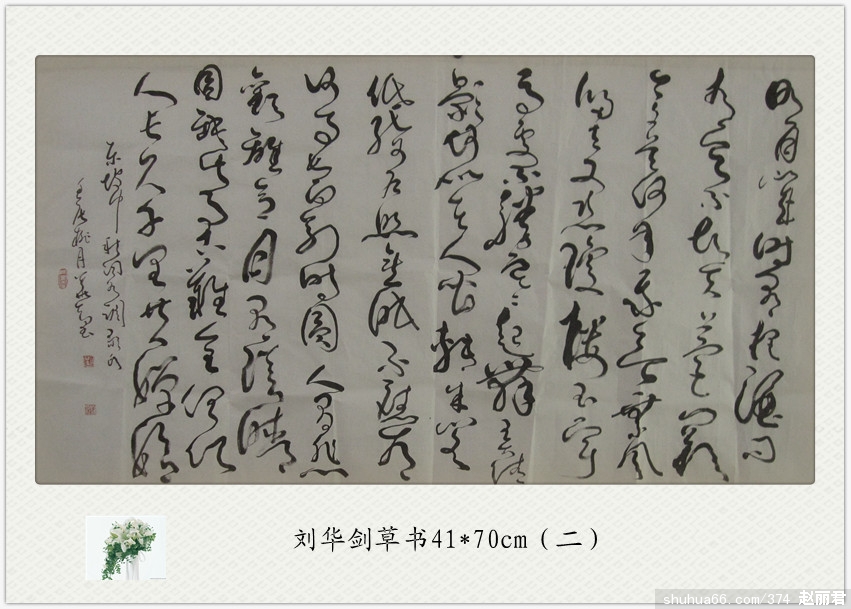 明月几时有把酒问
青天不知天上宫阙
今夕是何年我欲乘风
归去又恐琼楼玉宇
高处不胜寒起舞弄清
影何似在人间转朱阁
低绮户照无眠不应有
何事长向别时圆人有悲
欢离合月有阴晴
圆缺此事古难全但愿
人长久千里共婵娟
东坡中秋词水调歌头
刘华剑草书41*70cm（二）
shuhua66.com/374 赵丽君